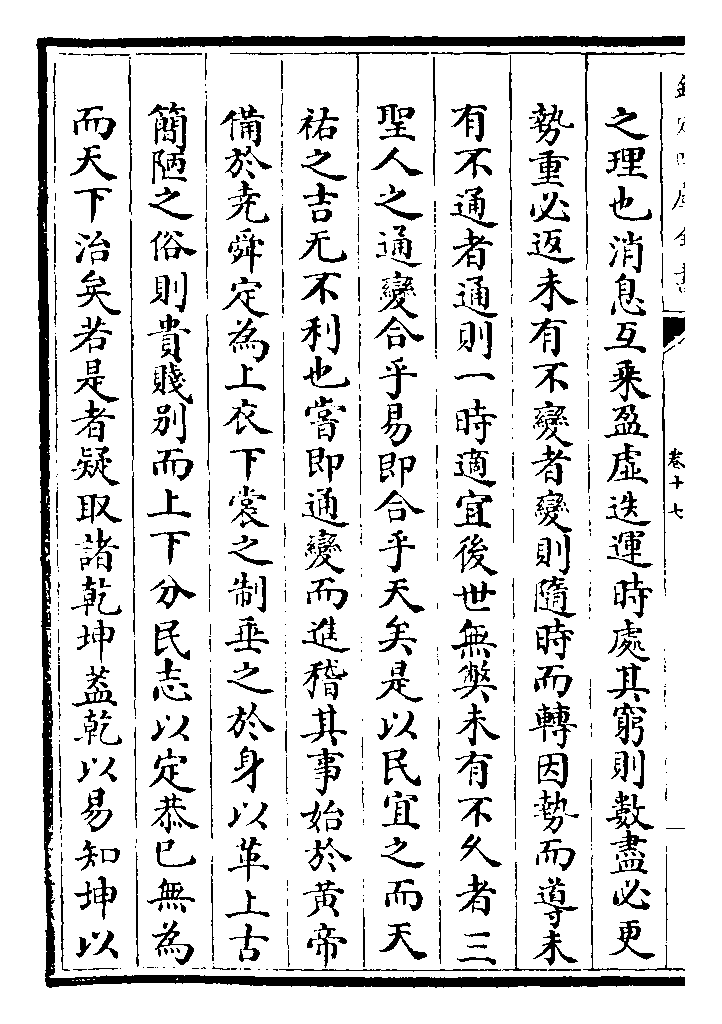 欽定四庫全書
卷十七
之理也消息互乘盈虛迭運時處其窮則數盡必更
勢重必返未有不變者變則隨時而轉因勢而導未
有不通者通則一時適宜後世無獘未有不久者三
聖人之通變合乎易即合乎天矣是以民宜之而天
祐之吉无不利也嘗即通變而進稽其事始於黄帝
備於尭舜定為上衣下裳之制垂之於身以革上古
簡陋之俗則貴賤别而上下分民志以定恭已無為
而天下治矣若是者疑取諸乾坤葢乾以易知坤以